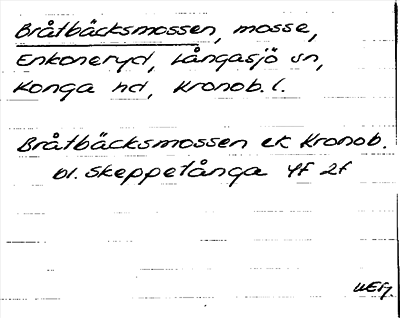 Bråtbäcksmossen, mosse,
Enkoneryd, Långasjö sn,
Konga hd, Kronob. l.
Bråtbäcksmossen ek Kronob.
bl. Skeppetånga 4f 2f